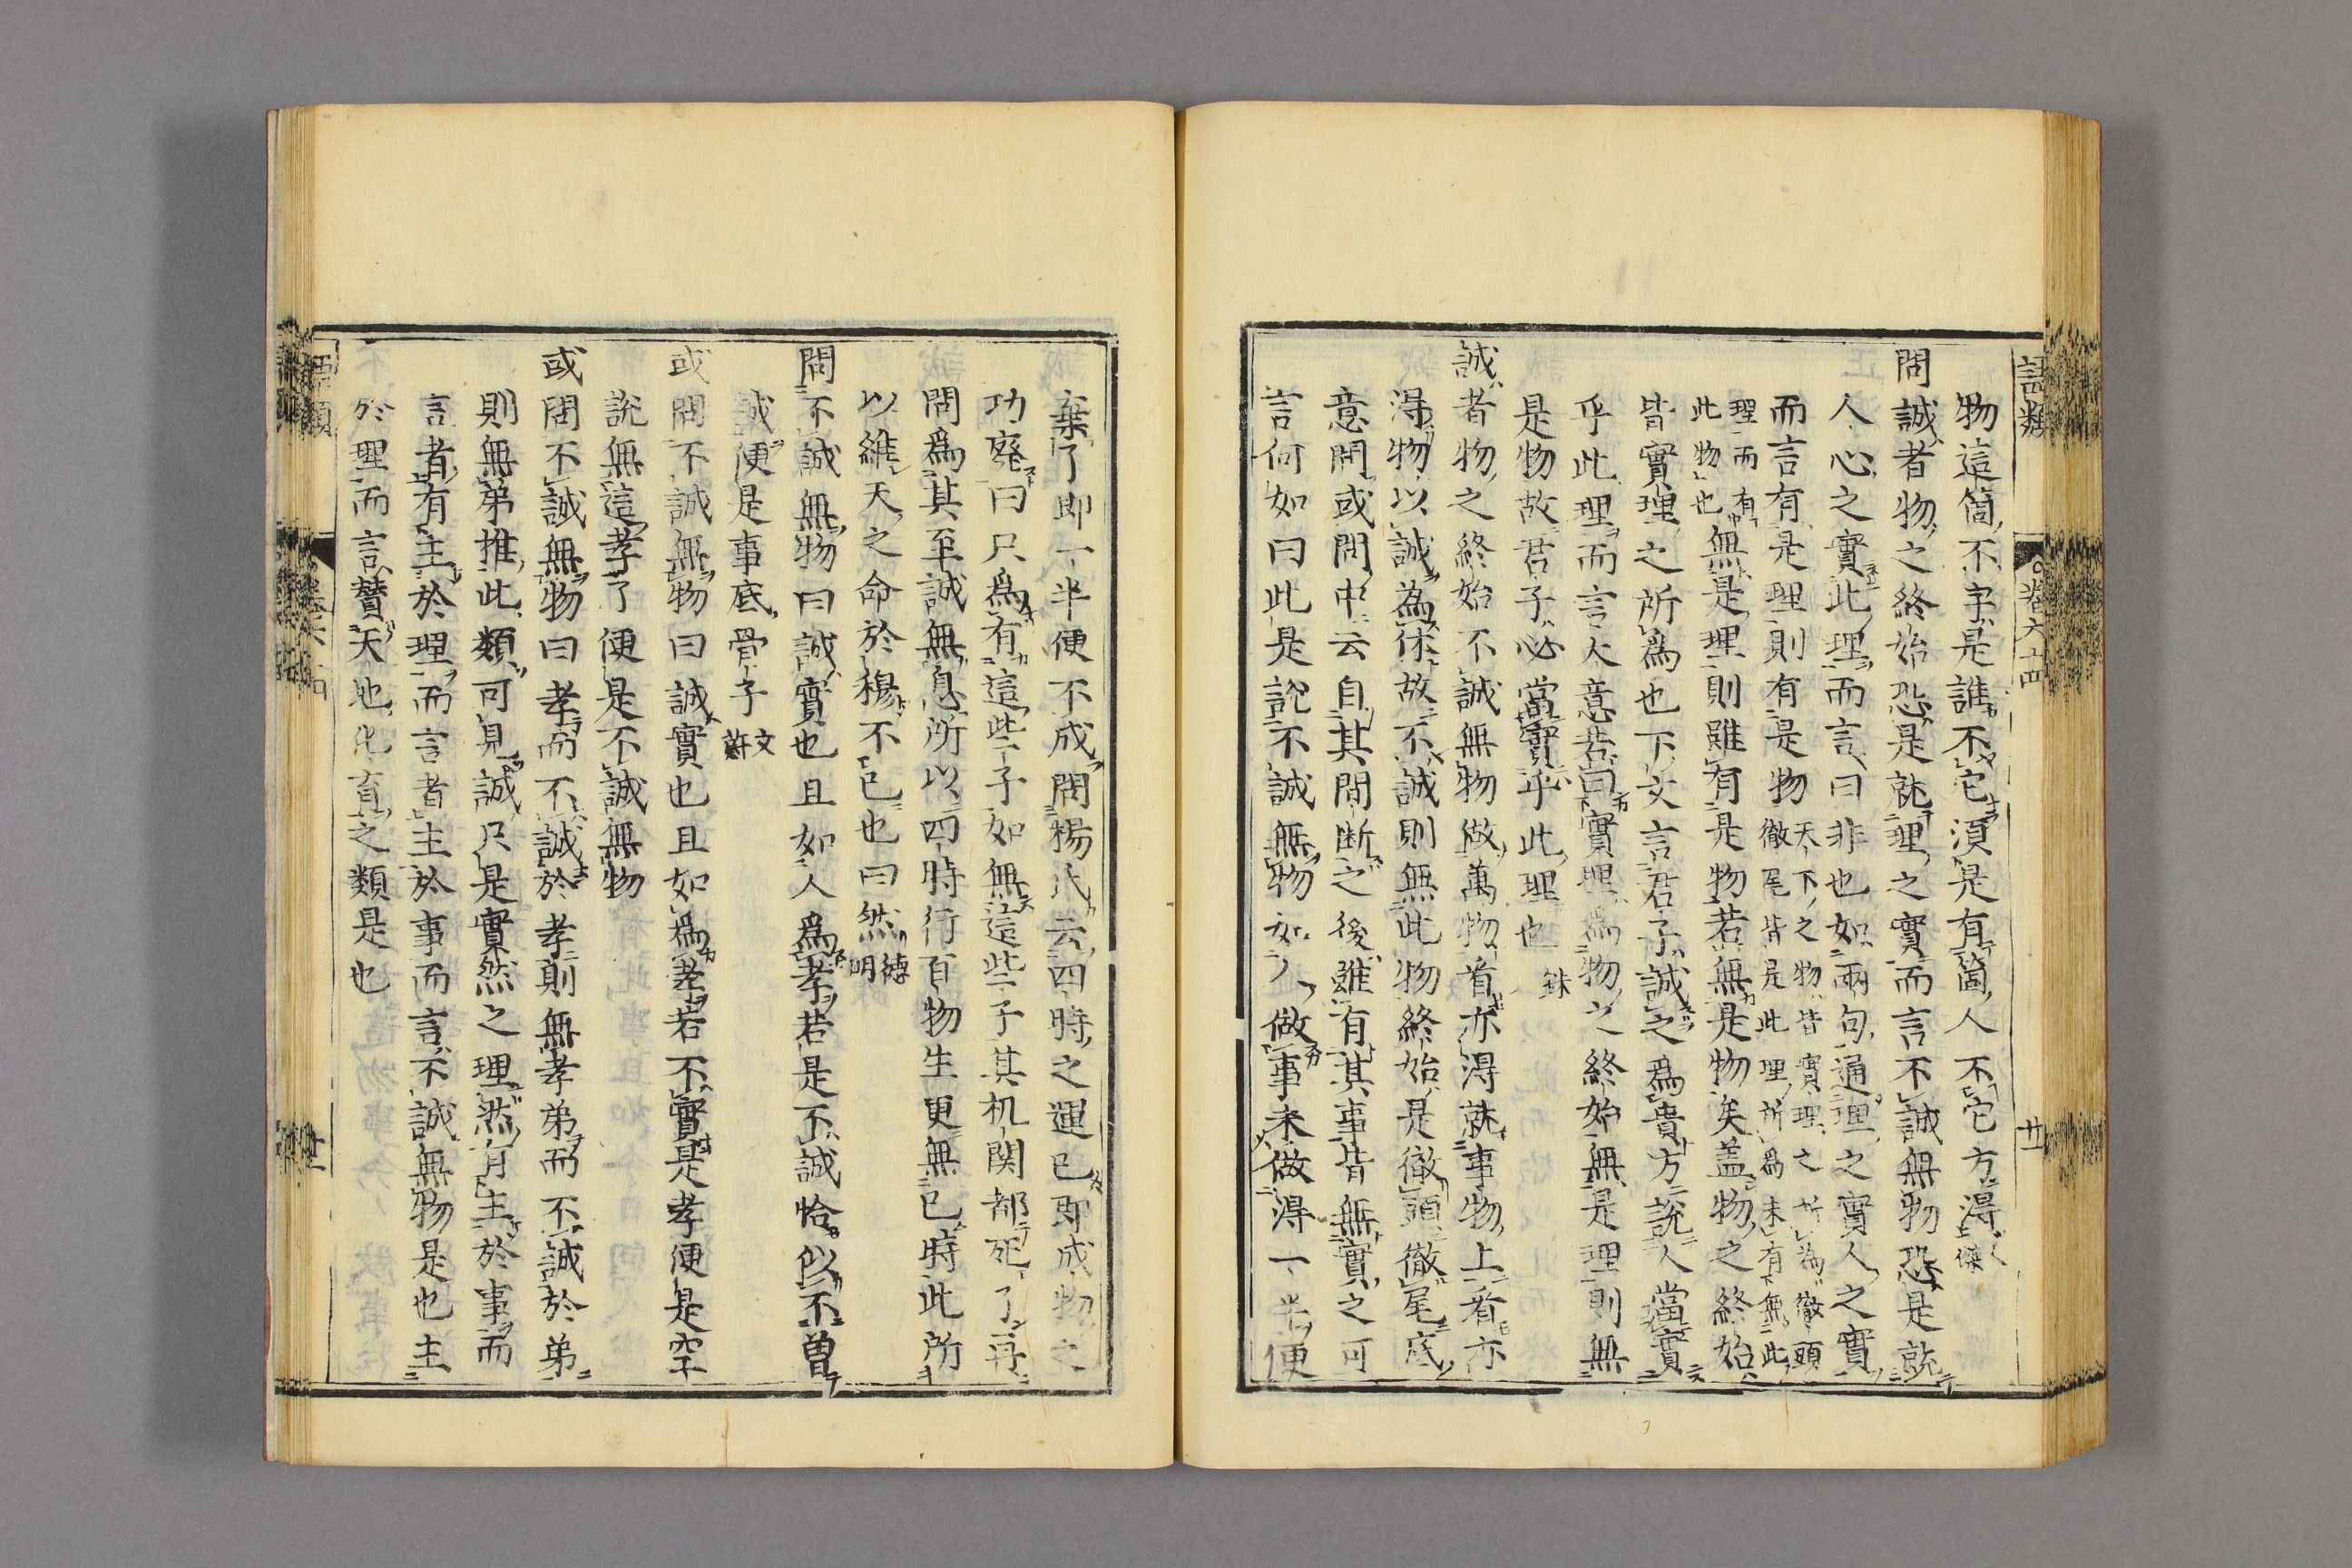 語類
卷六十四
廿一
物這箇不字是誰不它須是有箇人不它方得僩
問誠者物之終始恐是就理之實而言不誠無物恐是就
人心之實此理而言曰非也如兩句通理之實人之實
而言有是理則有是物天下之物皆實理之所為徹頭
徹尾皆是此理所為未有無此
理而有
此物也無是理則雖有是物若無是物矣盖物之終始
皆實理之所爲也下文言君子誠之爲貴方說人當實
乎此理而言大意若曰實理爲物之終始無是理則無
是物故君子必當實乎此理也銖
誠者物之終始不誠無物做萬物看亦得就事物上看亦
得物以誠為体故不誠則無此物終始是徹頭徹尾底
意問或問中云自其間断之後雖有其事皆無實之可
言何如曰此是說不誠無物如人做事未做得一半便
棄了即一半便不成問楊氏云四時之運已即成物之
功廢曰只爲有這些子如無這些子其机関都死了再
問爲其至誠無息所以四時行百物生更無已時此所
以維天之命於穆不已也曰然德明
問不誠無物曰誠實也且如人爲孝若是不誠恰似不曾
誠便是事底骨子文蔚
或問不誠無物曰誠實也且如爲孝若不實是孝便是空
說無這孝了便是不誠無物
或問不誠無物曰孝而不誠於孝則無孝弟而不誠於弟
則無弟推此類可見誠只是實然之理然有主於事而
言者有主於理而言者主於事而言不誠無物是也主
於理而言贊天地化育之類是也